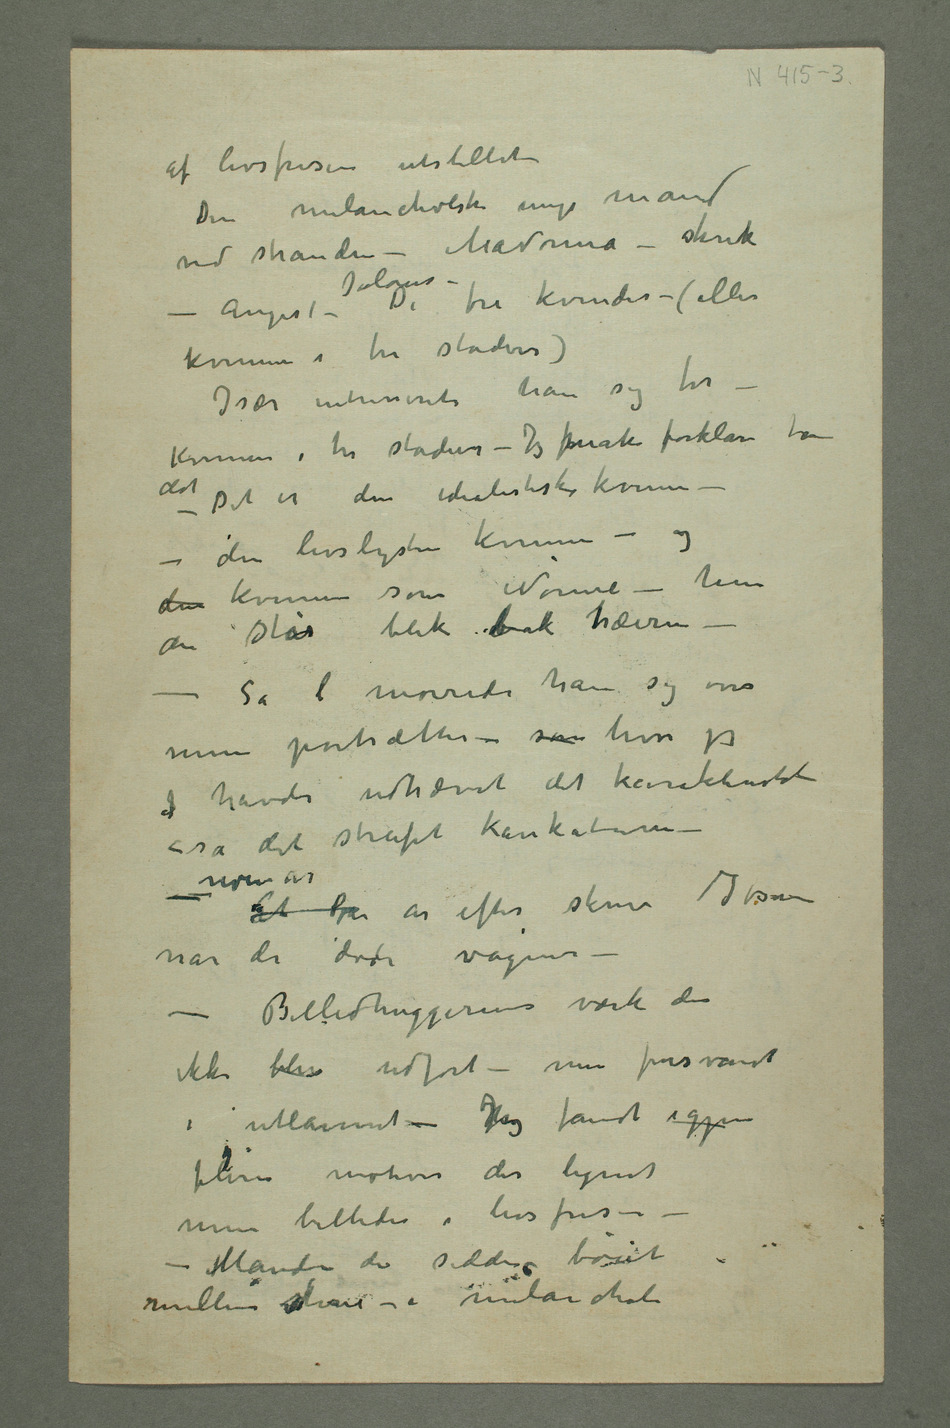 N 415-3.
af livsfrisen utstillet
Den melancholske unge mand
ved stranden – Madonna – skrik
– Angest – Jalousi – De tre kvinder – (eller
kvinnen i tre stadier)
Især interesserte han sig for –
Kvinnen i tre stadier – Jeg måtte forklare ham
det – Det er den idealistiske kvinne –
– den livslystne kvinne – og
den kvinnen som Nonne – hun
der står blek bak træerne –
– Så morede han sig over
mine portrætter – som hvor jeg
jeg havde udhævet det karakteristiske
– så det streifet karikaturen –
– noen år
Et Par år efter skrev Ibsen
når de døde vågner –
– Billedhuggerens værk der
ikke blev udført – men forsvandt
i utlannet – Jeg fandt igjen
flere motiver der lignet
mine billeder i livsfrisen –
– Manden der sidder bøiet
mellem stene – i melancholi